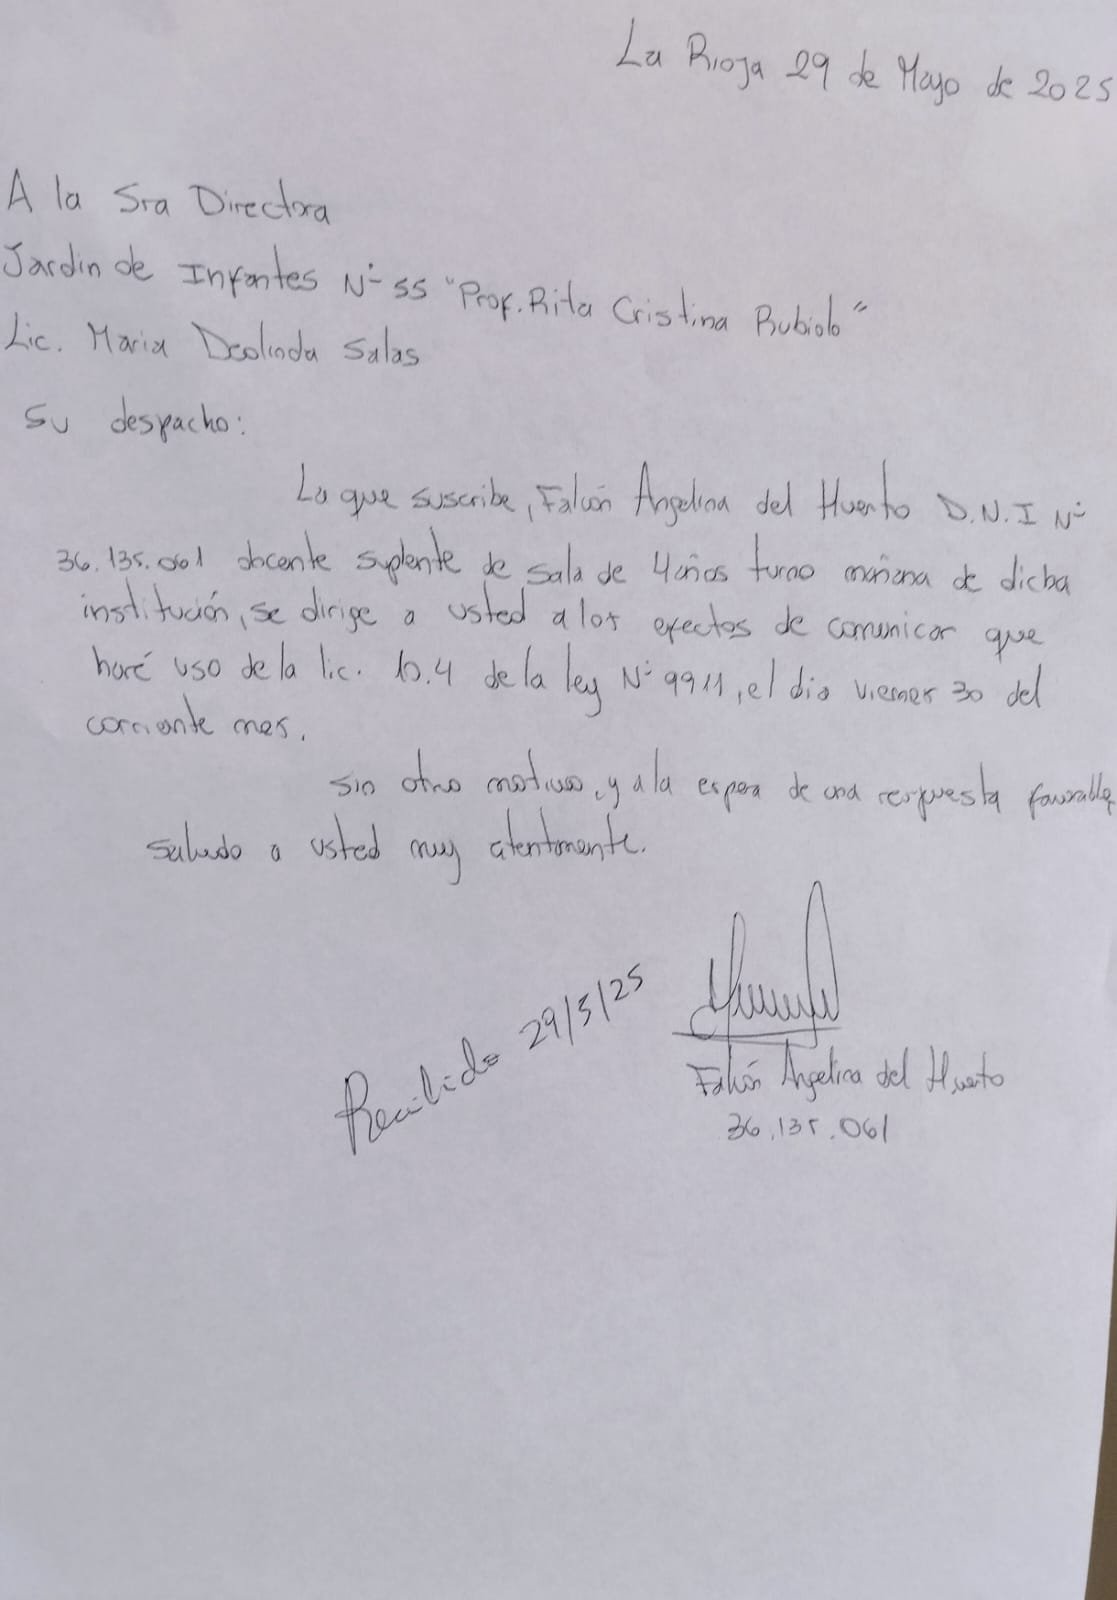 La Rioja 29 de Mayo de 2025
A la Sra Directora
Jardin de Infantes N° 55 "Prof. Rita Cristina Rubiolo"
Lic. Maria Deolinda Salas
Su despacho:
La que suscribe, Falcón Angelina del Huerto D.N.I N°
36.135.061 docente suplente de sala de 4 años turno mañana de dicha
institución, se dirige a usted a los efectos de comunicar que
haré uso de la lic. 10.4 de la ley N° 9911, el dia viernes 30 del
corriente mes.
Sin otro motivo, y a la espera de una respuesta favorable,
saludo a usted muy atentamente.
Recibido 29/5/25
Falcón Angelina del Huerto
36.135.061